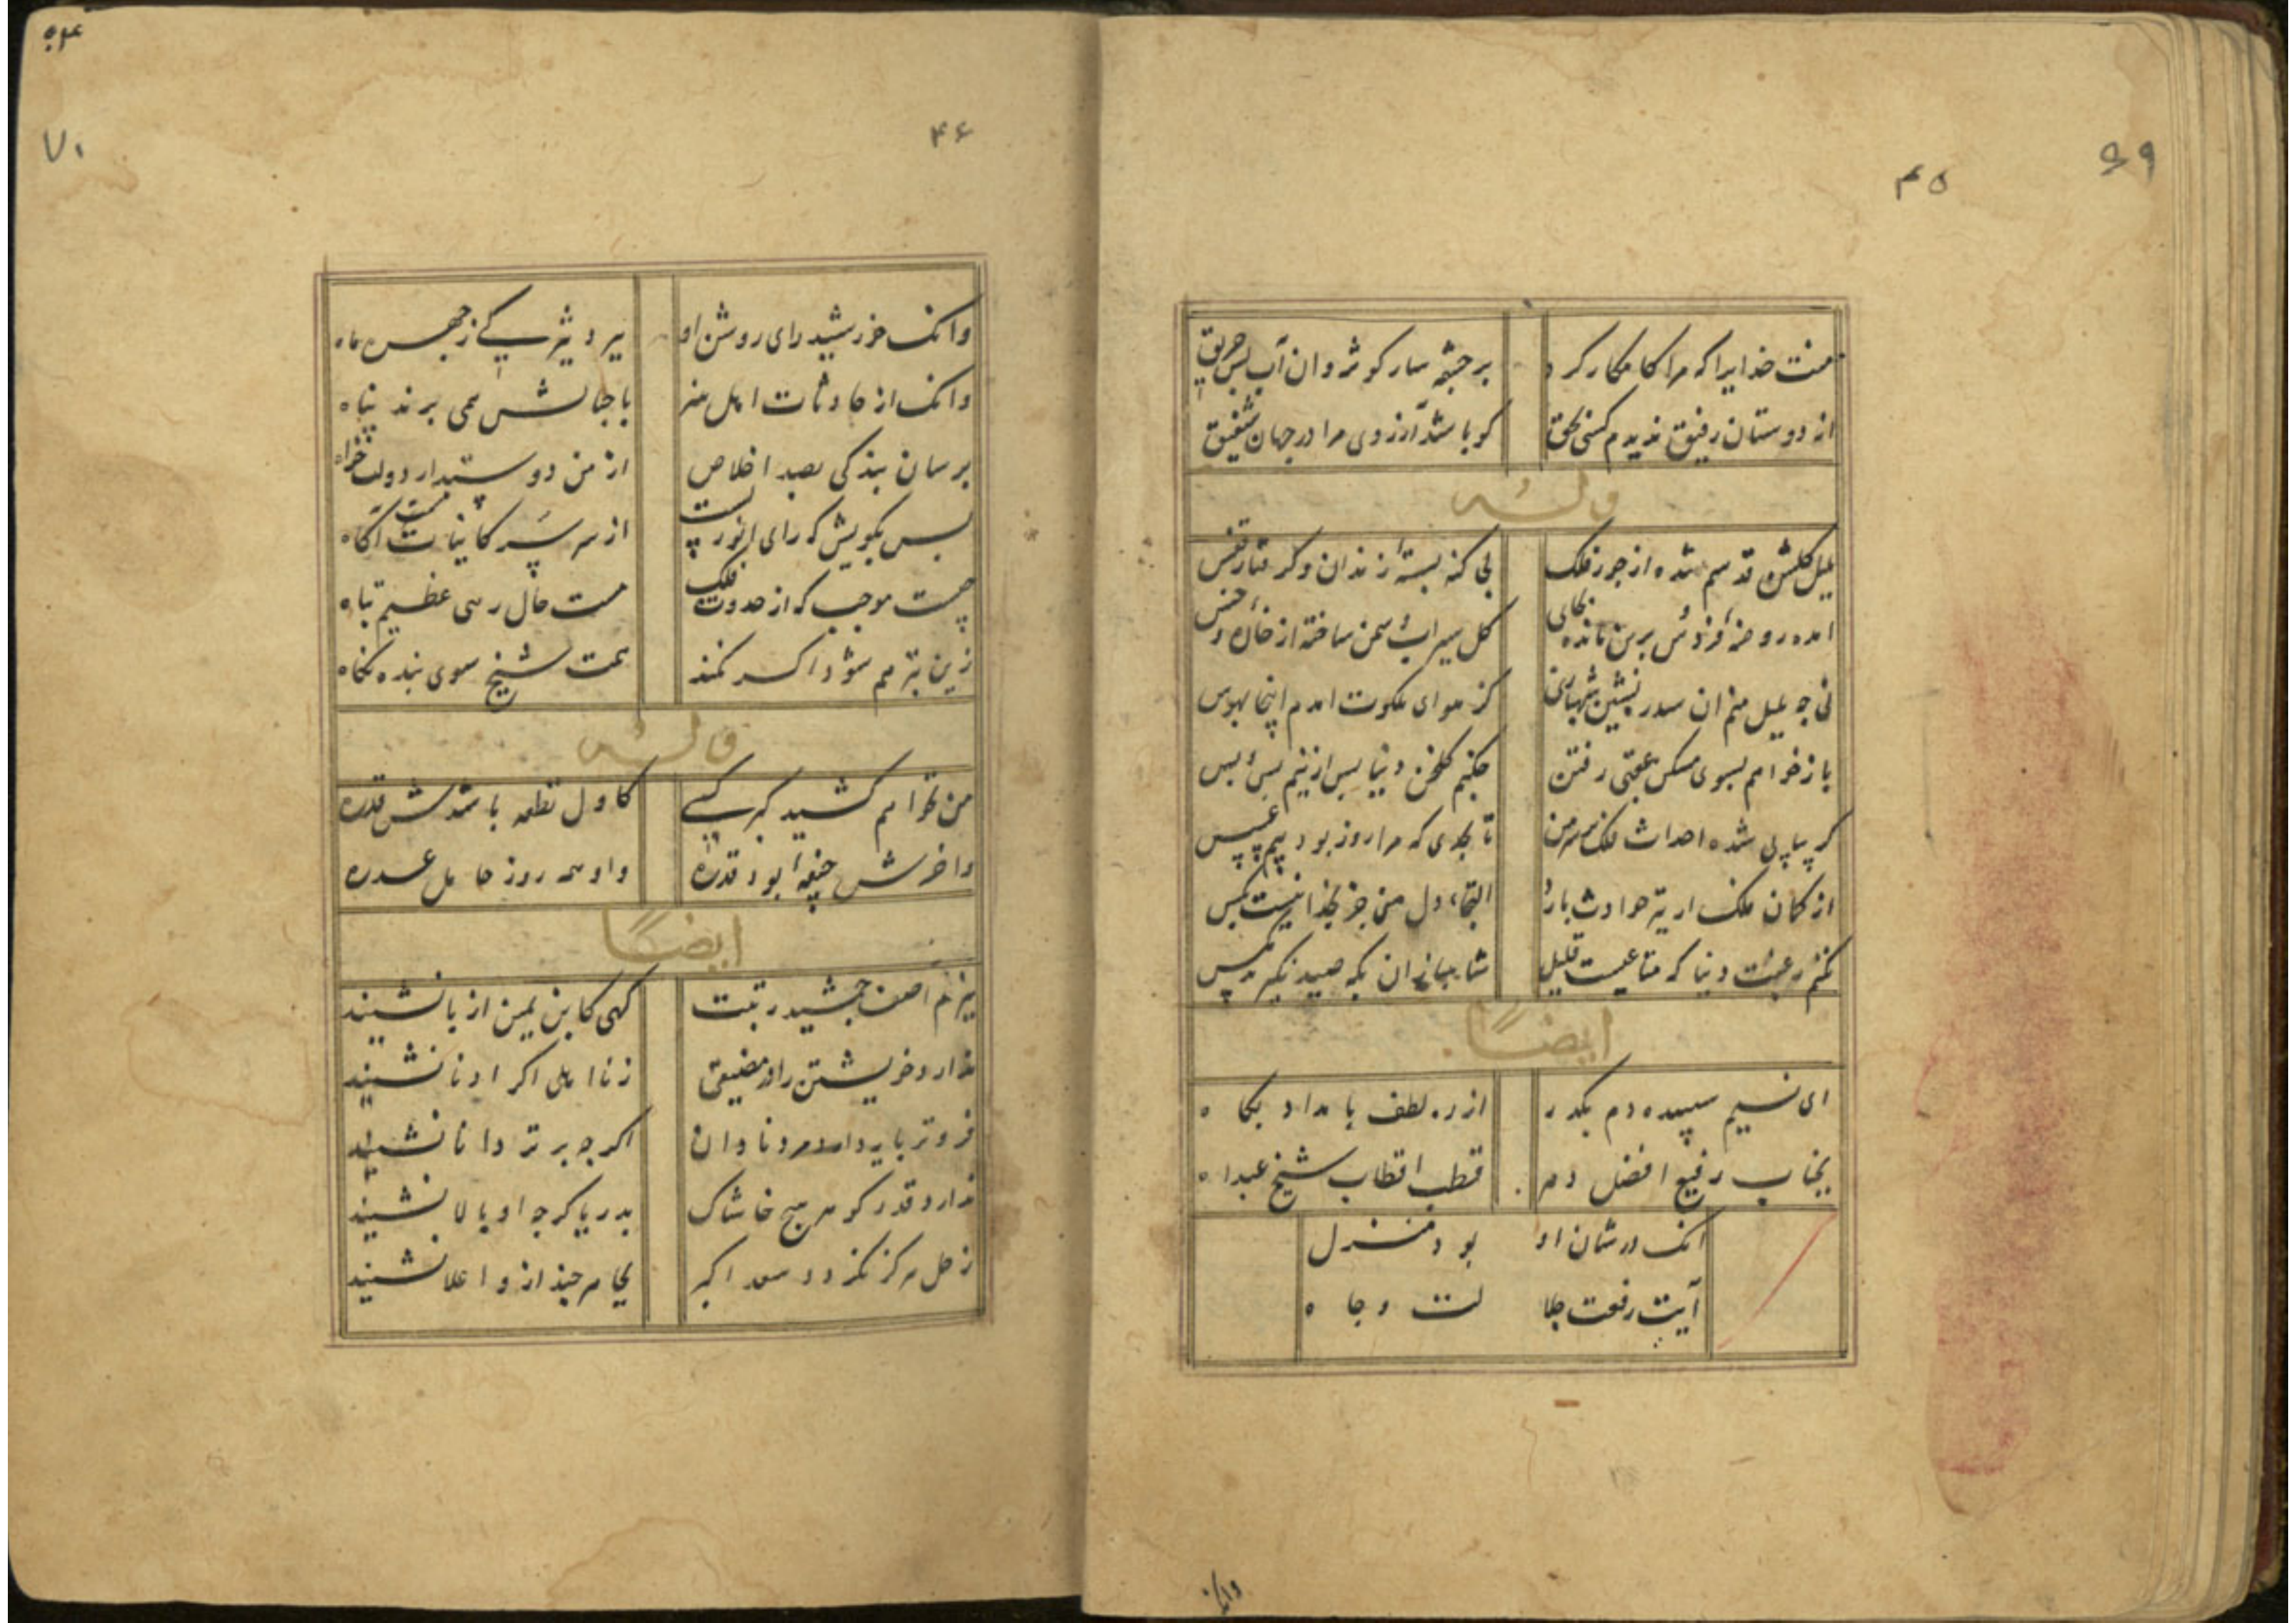 ۶۹
۴۵
منت خدایرا که مرا کامکار کرد بر چشمه سار کوثر و ان آب چون
از دوستان رفیق ندیدم کسی بحق کو باشد آرزوی مرا در جهان شفیق
وله
بلبل کلشن قدسم شده از جور فلک بی کنه بستهٔ زندان و کرفتار قفس
امده روضهٔ فردوس برین مانده بجای کل سیراب و سمن ساخته از خار و خس
نی چه بلبل منم ان سدره نشین شهبازی کز هوای ملکوت امدم اینجا بهوس
باز خواهم بسوی مسکن عقبی رفتن چکنم کلخن دنیا پس ازینم بس و بس
کر پیاپی شده احداث فلک بر سر من تا بحدی که مرا روز بود
از کمان فلک ار تیر حوادث بارد التجاء دل من جز بخدا نیست بکس
نکنم رغبت دنیا که متاعیست قلیل شاهبازان بکه صید نکیرند مکس
ایضاً
ای نسیم سپیده دم بکذر از ره لطف بامداد بکاه
بجناب رفیع افضل دهر قطب اقطاب شیخ عبداه
انک در شان او بود منزل
آیت رفعت جلا لت و جاه
وانک
۷۰
۴۶
وانک خورشید رای روشن او ز چهره ماه
وانک از حادثات اهل هنر با جنابش همی برند پناه
برسان بندکی بصد اخلاص از من دوستدار دولت خواه
پس بکویش که رای انور تست از سر سر کاینات آکاه
چیست موجب که از حدوث فلک هست حال رهی عظیم تباه
زین بتر هم شود اکر نکند همت شیخ سوی بنده نکاه
وله
من نخواهم کشید کبر کسی کاول نطفه باشدش قذره
واخرش جیفهٔ بود قذره واو همه روز حامل عذره
ایضاً
ببزم آصف جمشید رتبت کهی کابن یمین از پا نشیند
ندارد خویشتن را در مضیقی ز نااهلی اکر ادنا نشیند
فروتر پایه دارد مرد نادان اکرچه برتر دانا نشیند
ندارد قدر کوهر هیچ خاشاک بدریا کرچه او بالا نشیند
زحل هرکز نکردد سعد اکبر بجا هر چند ازو اعلا نشیند